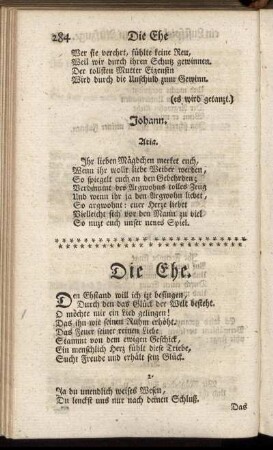 284 Die Ehe
Wer sie verehrt, fühlte keine Reu,
Weil wir durch ihren Schutz gewinnen.
Der tollsten Mutter
Wird durch die Unschuld zum Gewinn.
(es wird getanzt.)
Johann.
Aria.
Ihr lieben Mägdchen merket euch,
Wenn ihr wollt liebe Weiber werden,
So spiegelt euch an den Gebehrden;
Verdammt des Argwohns tolles Zeug
Und wenn ihr ja den Argwohn liebet,
So argwohnt: euer Herze liebet
Vielleicht sich vor den Mann zu viel
So nuzt euch unser neues Spiel.
Die Ehe.
Den Ehstand will ich izt besingen,
Durch den das Glück der Welt besteht.
O möchte mir ein Lied gelingen!
Das ihn wie seinen Ruhm erhöhe.
Das Feuer seiner reinen Liebe
Stammt von dem ewigen Geschick,
Ein menschlich Herz fühlt diese Triebe,
Sucht Freude und erhält sein Glück.
2.
Ja du unendlich weises Wesen,
Du lenckst uns nur nach deinen Schluß.
Das